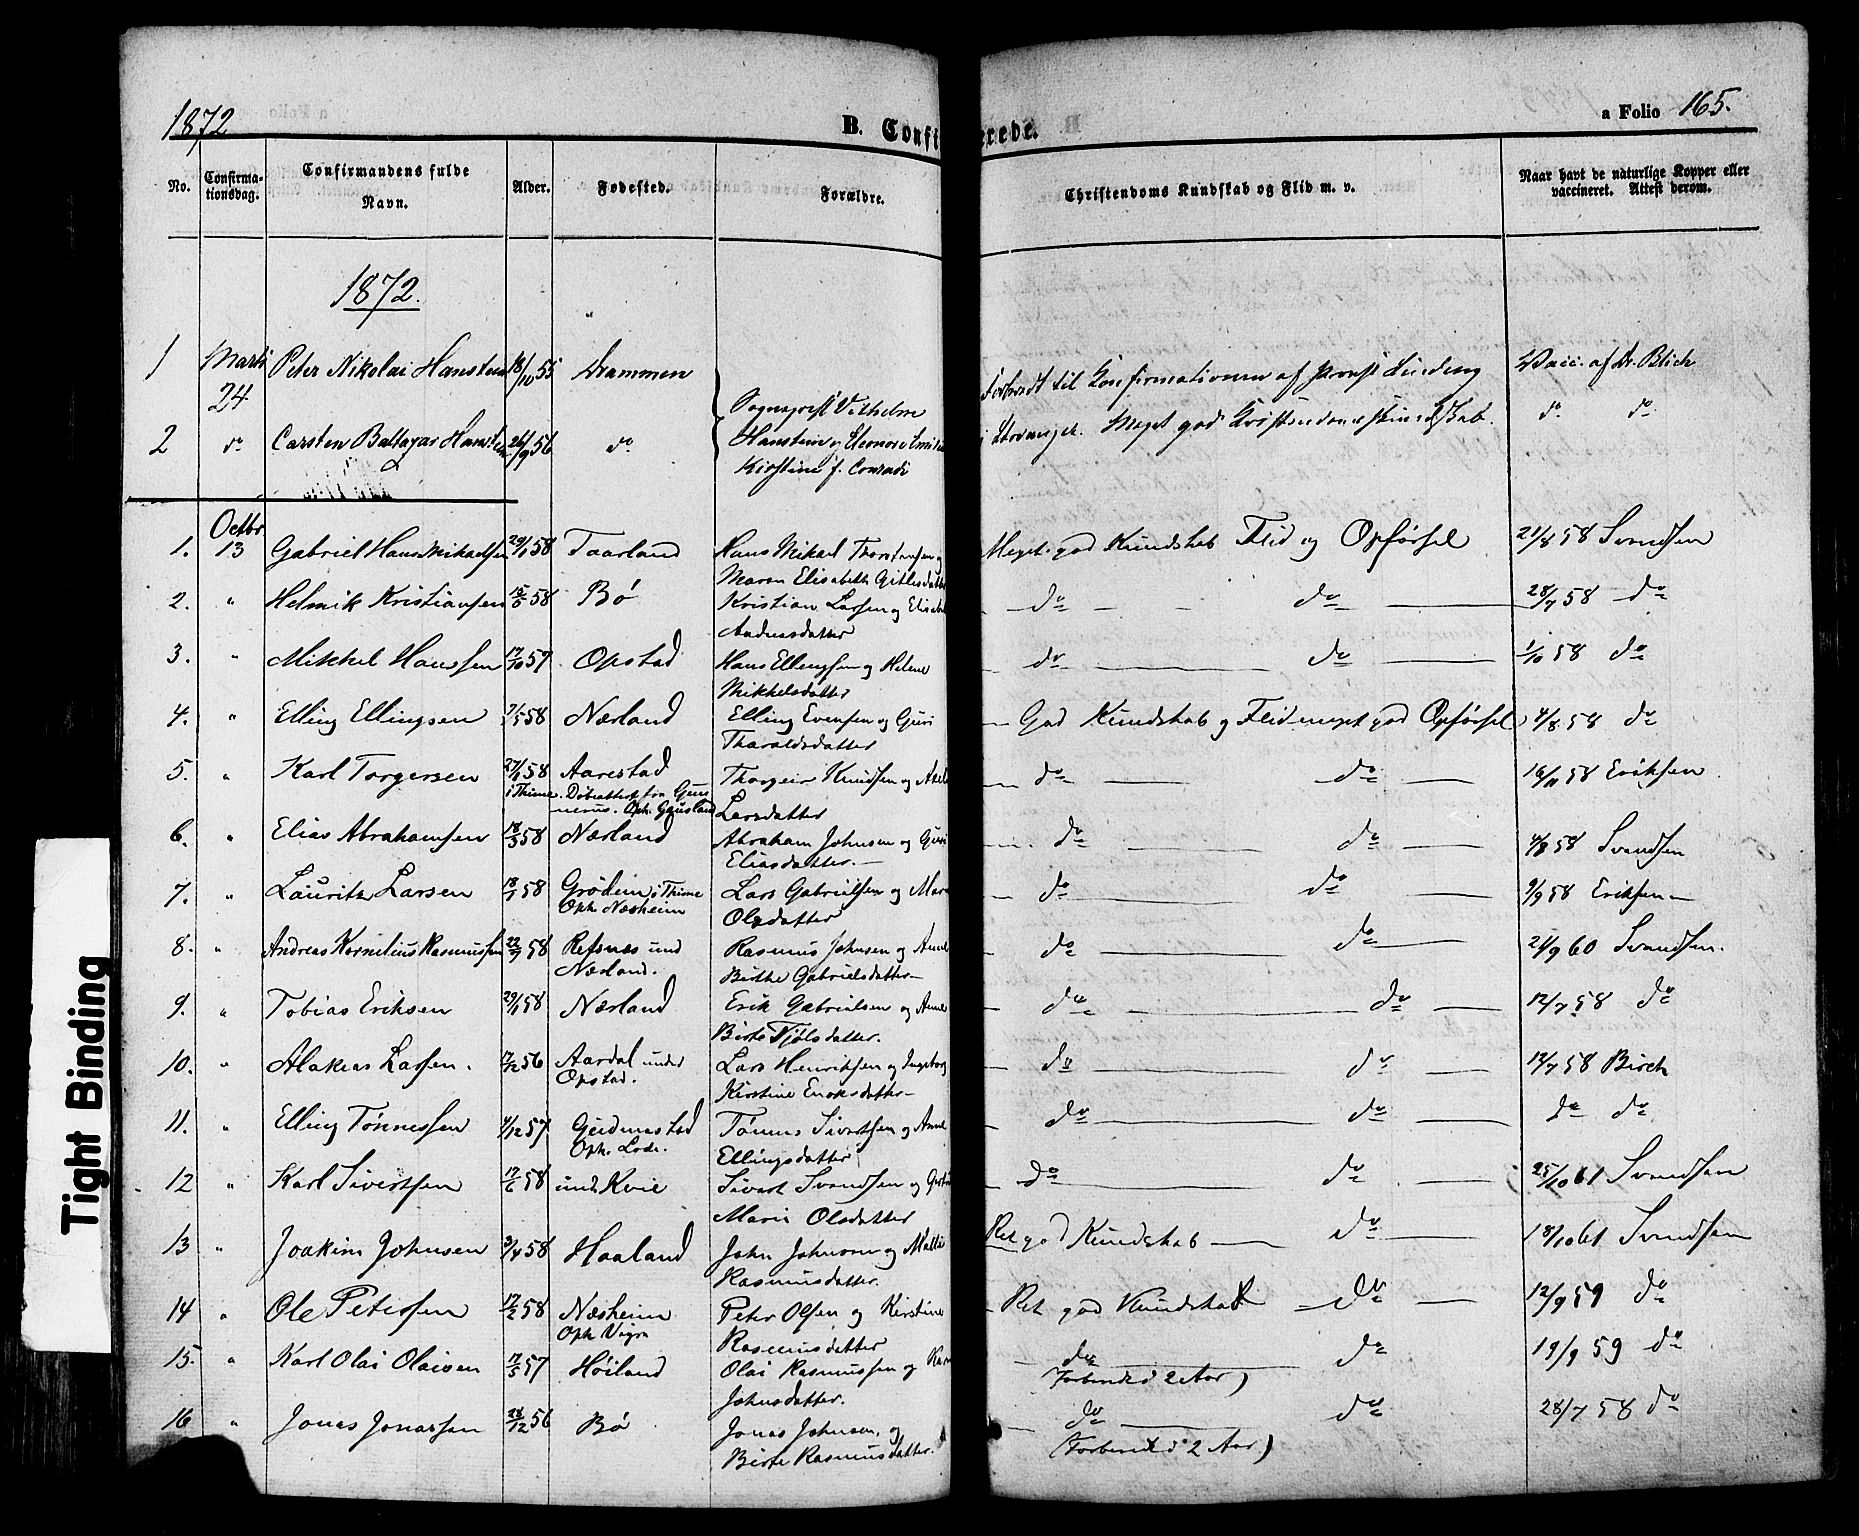 1872
B. Confi
erede.
a Folio 165.
No.
Confirma-
tionsdag.
Confirmandens fulde
Navn.
Alder.
Fødested.
Forældre.
Christendoms Kundskab og Flid m. v.
Naar havt de naturlige Kopper eller
vaccineret. Attest derom.
1872.
1 Marts 24 Peter Nikolai Hansteen 18/10 55 Drammen
2 do Carsten Baltazar Hansteen 26/9 56 do
Sognepræst Vilhelm
Hansteen og Eleonore Emilie
Kirstine f. Conradi
Forberedt til Konfirmationen af Provst
i Stavanger. Meget god Kristendomskundskab.
Vacc. af Dr. Blich
do do
Octbr
1. 13 Gabriel Hans Mikaelsen 29/1 58 Taarland Hans Mikael Thorstensen og Meget god Kundskab Flid og Opførsel 21/8 58 Svendsen
Maren Elisabeth Gitlesdatter
2. " Helmik Kristiansen 58 Bø Kristian Larsen og Elisabet do do 28/7 58 do
Andreasdatter
3. " Mikkel Hanssen 17/10 57 Opstad Hans Ellingsen og Helene do do 1/10 58 do
Mikkelsdatter
4. " Elling Ellingsen 7/5 58 Nærland Elling Evensen og Guri God Kundskab og Flid meget god Opførsel 4/8 58 do
Tharaldsdatter
5. " Karl Torgersen 58 Aarestad Thorgeir Knudsen og Axeli do do 16/11 58 Eriksen
i Thime. Døbeattest fra Gun-
nerus. Oph. Gausland Larsdatter
6. " Elias Abrahamsen 18/3 58 Nærland Abraham Johnsen og Guri do do 4/8 58 Svendsen
Eliasdatter.
7. " Lauritz Larsen 58 Grødeim i Thime Lars Gabrielsen og Mar do do 9/9 58 Eriksen
Oph. Næsheim Olsdatter
8. " Andreas Kornelius Rasmussen 58 Refsnæs und Rasmus Johnsen og Anne do do 24/9 60 Svendsen.
Nærland. Birthe Gabrielsdatter
9. " Tobias Eriksen 29/1 58 Nærland Erik Gabrielsen og Anne do do 12/7 58 do
Birte Tjølsdatter.
10. " Makias Larsen. 17/12 56 Aardal under Lars Henriksen og Ingeborg do do 12/7 58 Birch
Opstad. Kirstine Enoksdatter
11. " Elling Tønnessen 4/12 57 Gudmestad Tønnes Sivertsen og Anne do do do do
Oph. Lode. Ellingsdatter
12 " Karl Sivertsen 17/6 58 und. Kvie Sivert Svendsen og do do 25/10 61 Svendsen
Marie Olsdatter
13 " Joakim Johnsen 3/4 58 Haaland John Johnsen og Malli Ret god Kundskab do 18/10 61 Svendsen
Rasmusdatter.
14 " Ole Petersen 17/2 58 Næsheim Peter Olsen og Kirstine Ret god Kundskab do 12/9 59 do
Oph Vigre Rasmusdatter
15. " Karl Olai Olaisen 17/5 57 Høiland Olai Rasmussen og do do 19/9 59 do
Johnsdatter. (Forberedt i 2 Aar)
16 " Jonas Jonassen 28/12 56 Bø Jonas Johnsen og do do 28/7 58 do
Birte Rasmusdatter. (Forberedt i 2 Aar)
Tight Binding